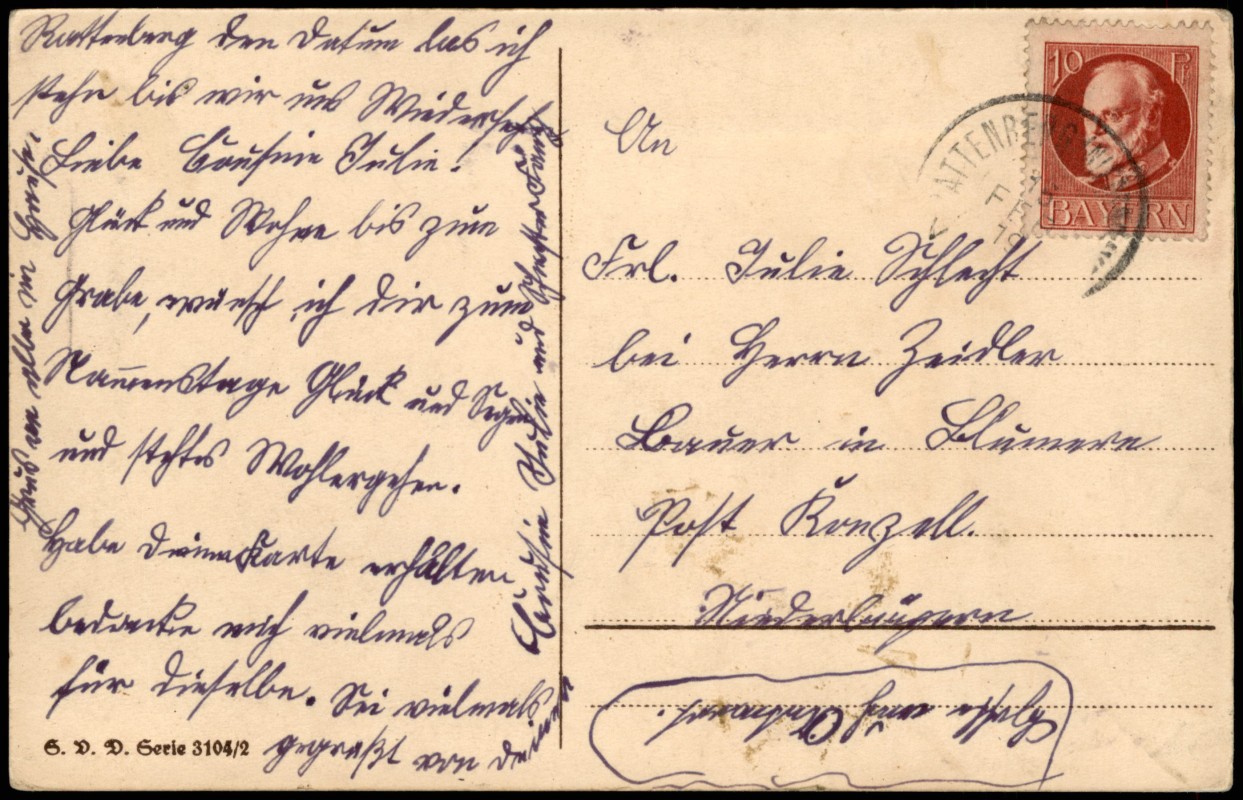 Rattenberg den Datum las ich
stehn bis wir uns Wiedersehn
Liebe Cousine Julie!
Glück und Wohne bis zum
Grabe, wünsch ich dir zum
Namenstage Glück und Segen
und stehts Wohlergehen.
Habe deine Karte erhalten
bedancke mich vielmals
für dieselbe. Sei vielmals
gegrüßt von deiner
Cousine Julie und
Gruß an alle im Hause.
S. V. D. Serie 3104/2
10 Pf
BAYERN
An
Frl. Julie Schlecht
bei Herrn Zeidler
Bauer in
Post Konzell.
Niederbayern